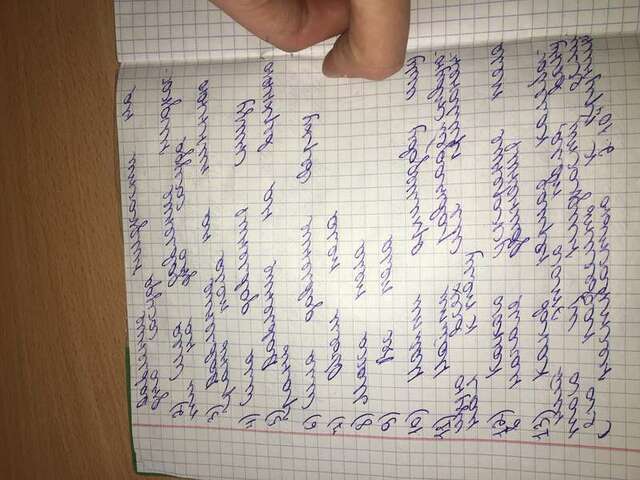 Давление жидкости на
дно сосуда
2) Сила давление жидкос-
ти на дно сосуда
3) Давление на нижнюю
грань тела
4) Сила давления снизу
5) Давление на верхнюю
грань
6) Сила давление сверху
7) Объем тела
8) Масса тела
9) Вес тела
10) Найти архимедову силу
11) Найти равнодействую-
щую всех сил приложен-
ных к телу
12) Каково ускорение тела
в начале движения
13) Каков период колеба-
ния этого тела,
того из жидкости если
его подвесить к пружине
с жесткостью 2·10